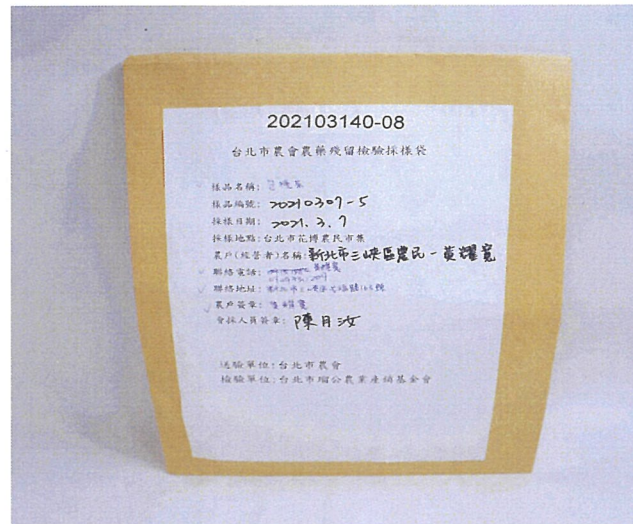 202103140-08
台北市農會農藥殘留檢驗採樣袋
樣品名稱:
樣品編號: 20210307-5
採樣日期: 2021.3.7
採樣地點:台北市花博農民市集
農戶(經營者)名稱:新北市三峽區農民-黃耀寬
聯絡電話:
聯絡地址:新北市三峽區
農戶簽章:黃耀寬
會採人員簽章:陳月汝
送驗單位:台北市農會
檢驗單位:台北市瑠公農業產銷基金會